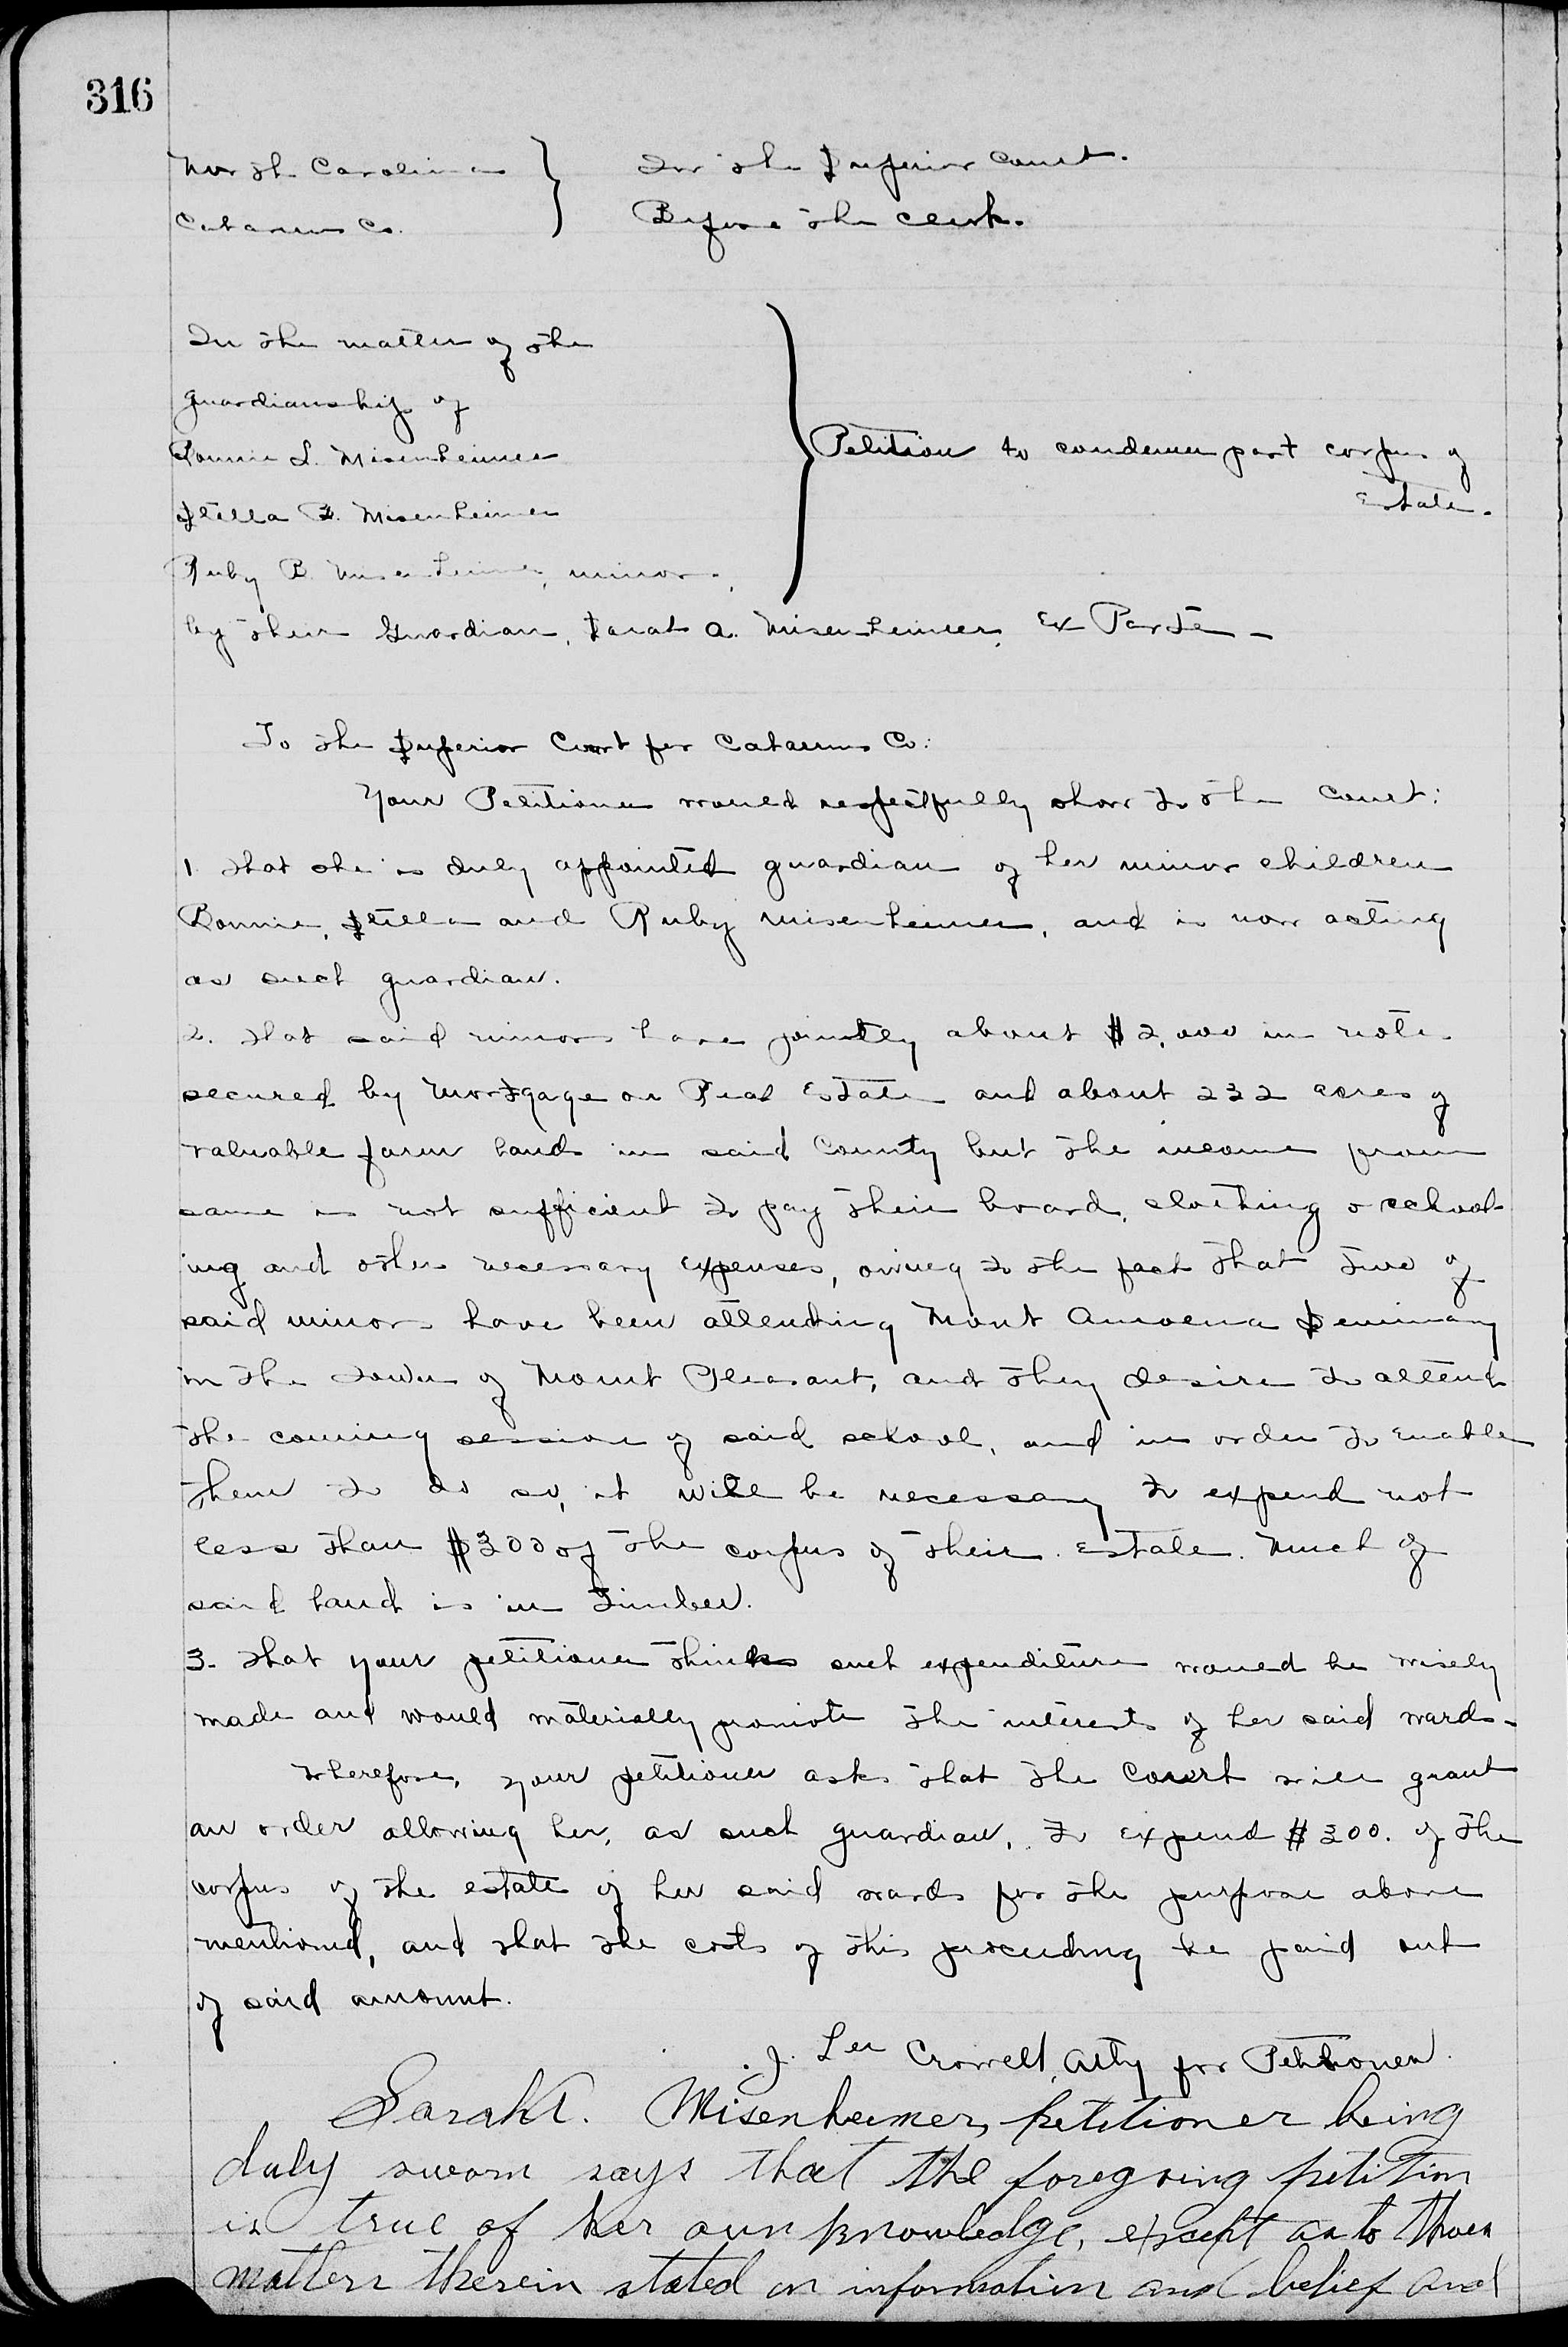 316
North Carolina } In the Superior Court.
Cabarrus Co. Before the Clerk.
In the matter of the
guardianship of
Bonnie L. Misenheimer
Stella Misenheimer
Ruby B. Misenheimer, minors,
by their Guardian, Sarah A. Misenheimer, Ex Parte -
} Petition to condemn part corpus of
Estate.
To the Superior Court for Cabarrus Co:
Your Petitioner would respectfully show to the Court:
1. That she is duly appointed guardian of her minor children
Bonnie, Stella and Ruby Misenheimer, and is now acting
as such guardian.
2. That said minors have jointly about $2,000 in notes
secured by Mortgage on Real Estate and about 232 acres of
valuable farm lands in said County but the income from
same is not sufficient to pay their board, clothing & school-
ing and other necessary expenses, owing to the fact that two of
said minors have been attending Mont Amoena Seminary
in the town of Mount Pleasant, and they desire to attend
the coming session of said school, and in order to enable
them to do so, it will be necessary to expend not
less than $300 of the corpus of their Estate. Much of
said land is in Timber.
3. That your petitioner thinks such expenditure would be wisely
made and would materially promote the interests of her said wards.
Wherefore, your petitioner asks that the Court will grant
an order allowing her, as such guardian, to expend $300. of the
corpus of the estate of her said wards for the purpose above
mentioned, and that the costs of this proceeding be paid out
of said amount.
J. Lee Crowell, Atty for Petitioner.
Sarah A. Misenheimer, petitioner being
duly sworn says that the foregoing petition
is true of her own knowledge, except as to those
matters therein stated on information and belief and